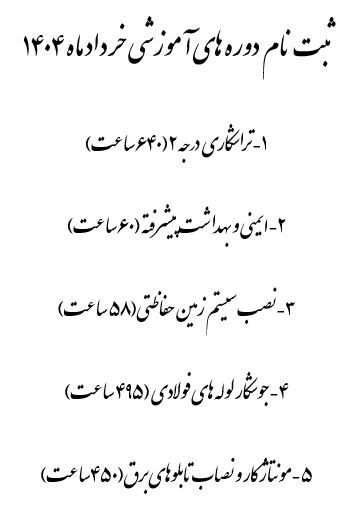 ثبت نام دوره های آموزشی خردادماه ۱۴۰۴
۱-تراشکاری درجه ۲ (۶۴۰ساعت)
۲-ایمنی و بهداشت پیشرفته (۶۰ساعت)
۳-نصب سیستم زمین حفاظتی(۵۸ ساعت)
۴-جوشکار لوله های فولادی (۴۹۵ ساعت)
۵-مونتاژکار و نصاب تابلوهای برق (۴۵۰ساعت)